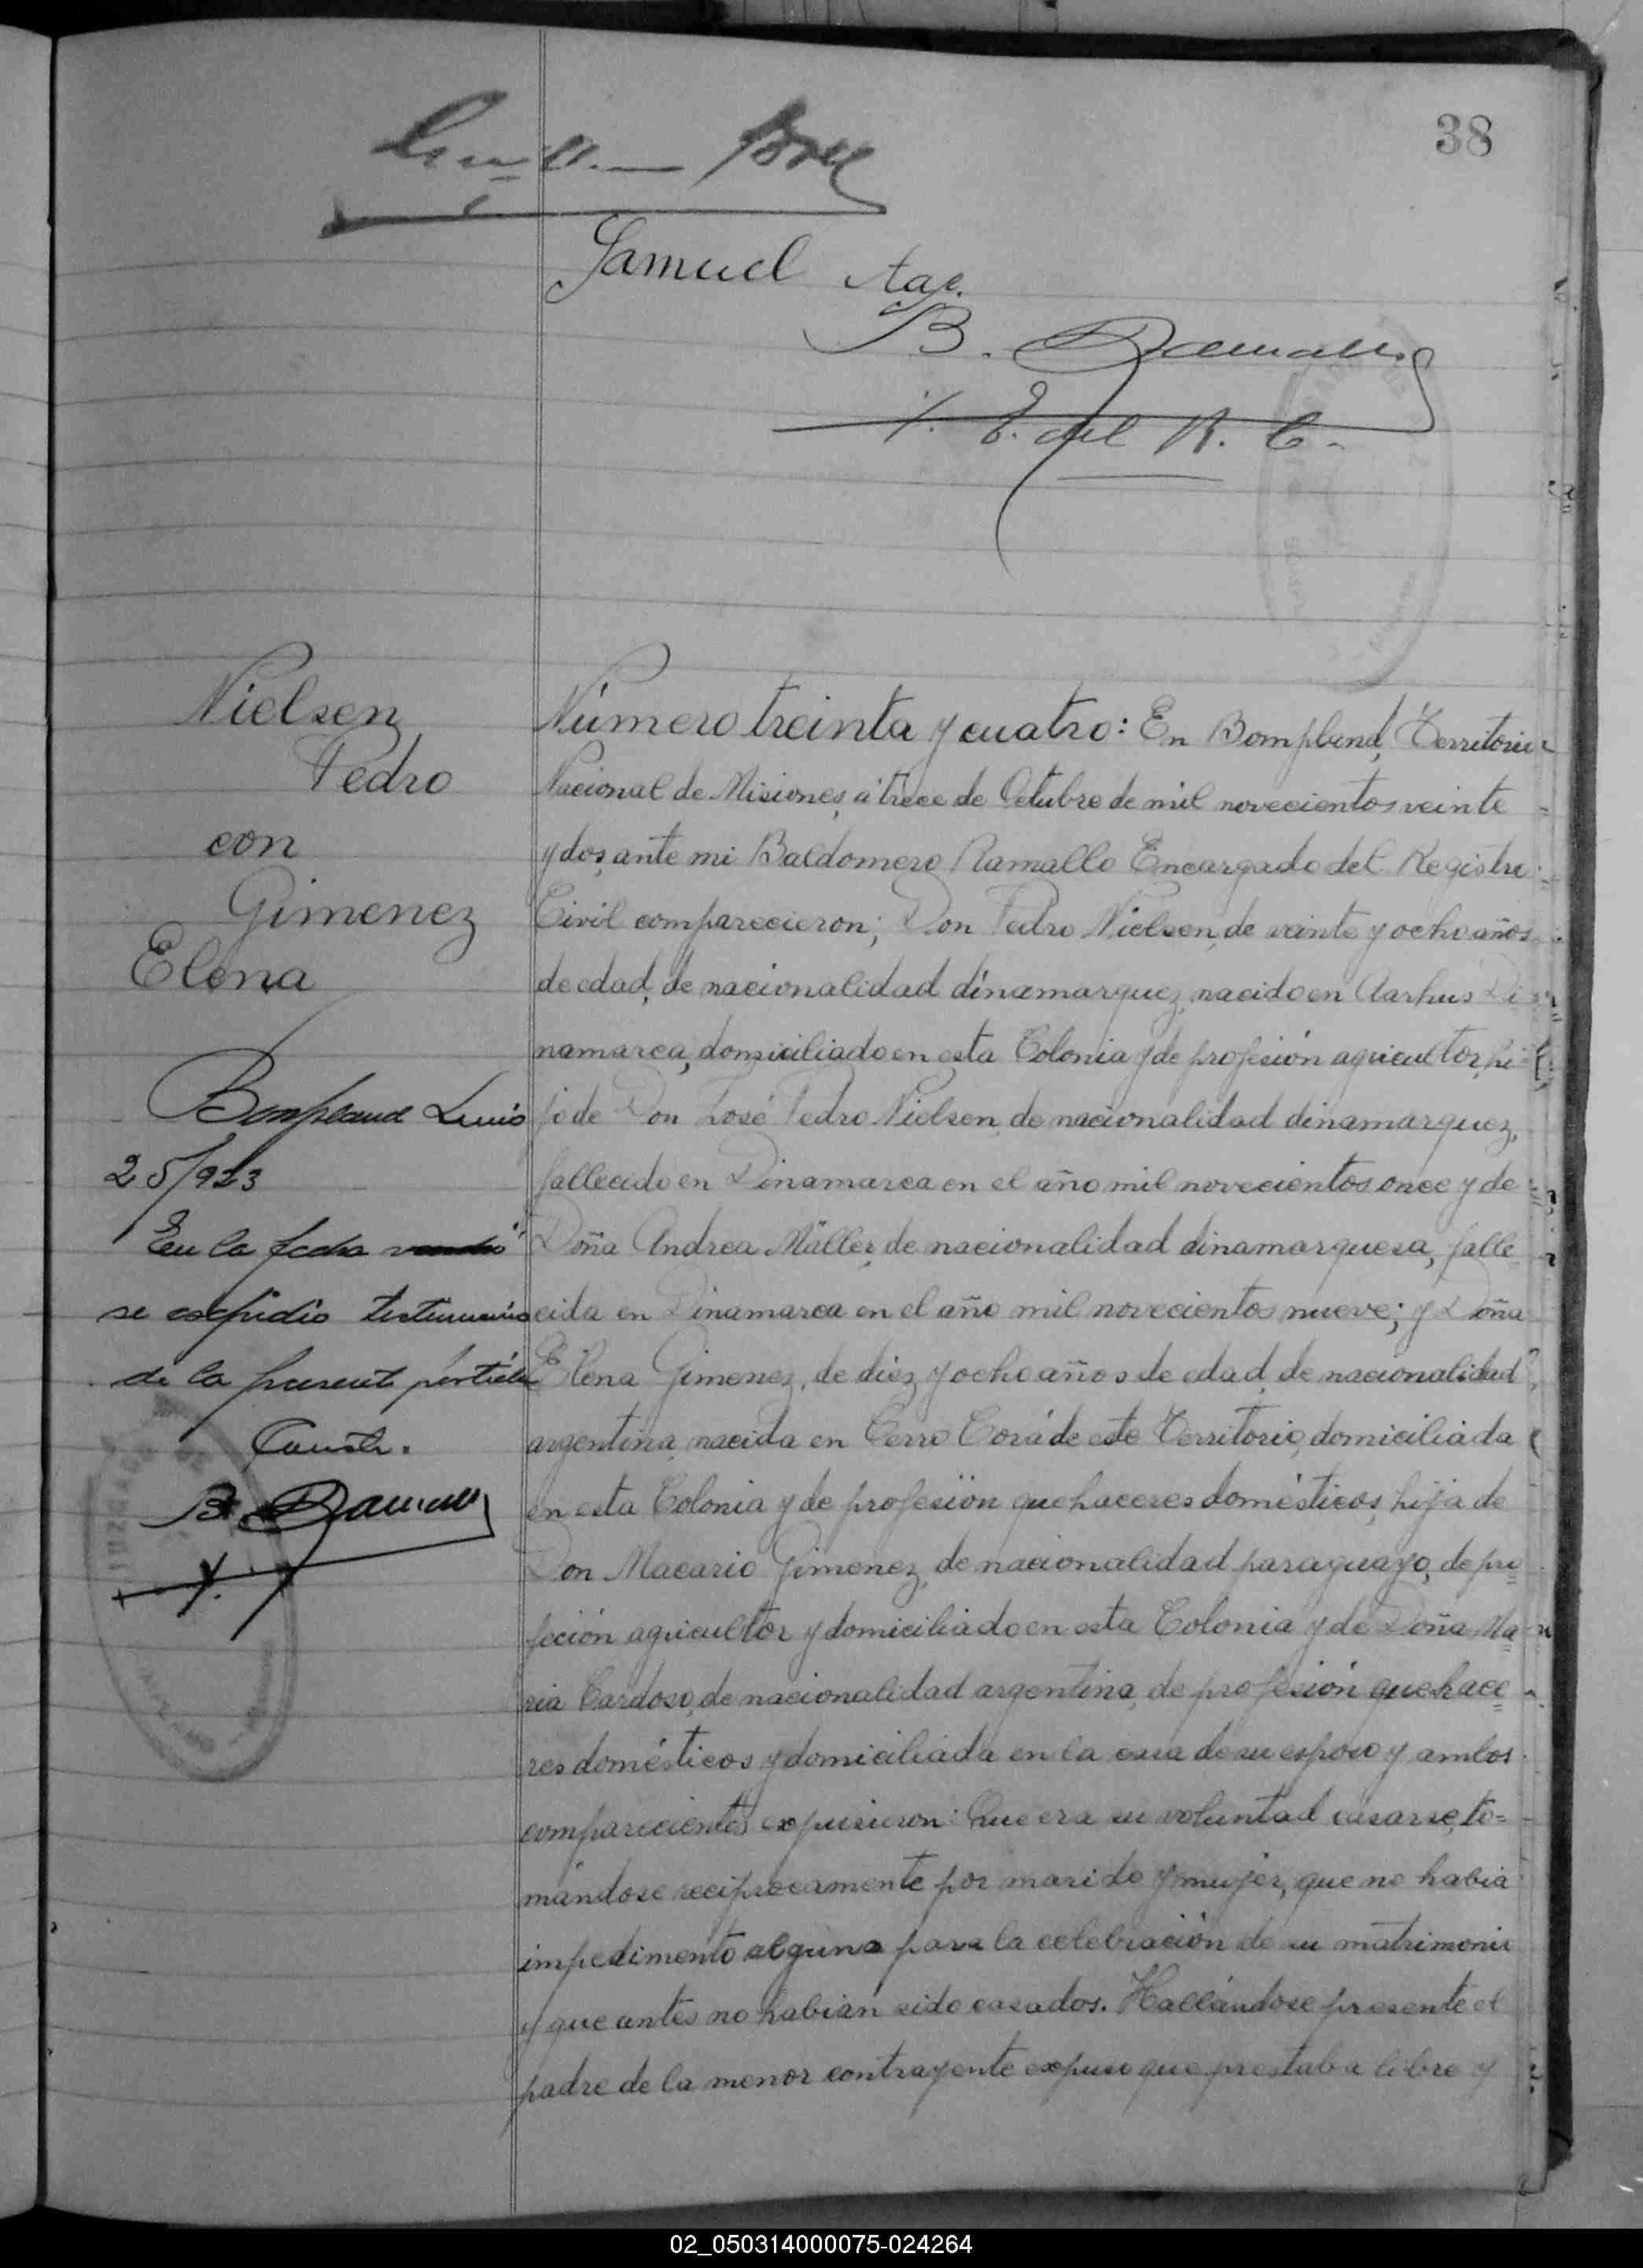 38
Samuel
B. Ramallo
E. del R. C.
Nielsen
Pedro
con
Gimenez
Elena
Bompland Junio
25/923
En la fecha
se expidió testimonio
de la presente partida
Conste.
B. Ramallo
Número treinta y cuatro: En Bompland, Territorio
Nacional de Misiones, á trece de Octubre de mil novecientos veinte
y dos, ante mi Baldomero Ramallo Encargado del Registro
Civil comparecieron; Don Pedro Nielsen, de veinte y ocho años
de edad, de nacionalidad dinamarquez, nacido en Aarhus Di
namarca, domiciliado en esta Colonia y de profesión agricultor, hi
jo de Don José Pedro Nielsen, de nacionalidad dinamarquez,
fallecido en Dinamarca en el año mil novecientos once y de
Doña Andrea Mäller, de nacionalidad dinamarquesa, falle
cida en Dinamarca en el año mil novecientos nueve; y Doña
Elena Gimenez, de diez y ocho años de edad, de nacionalidad
argentina, nacida en Cerro Corá de este Territorio, domiciliada
en esta Colonia y de profesión quehaceres domésticos, hija de
Don Macario Gimenez, de nacionalidad paraguayo, de pro=
feción agricultor y domiciliado en esta Colonia y de Doña Ma=
ria Cardoso, de nacionalidad argentina, de profesión quehace=
res domésticos y domiciliada en la casa de su esposo y ambos
comparecientes expusieron: Que era su voluntad casarse, to=
mándose reciprocamente por marido y mujer, que no habia
impedimento alguno para la celebración de su matrimonio
y que antes no habian sido casados. Hallándose presente el
padre de la menor contrayente expuso que prestaba libre y
02_050314000075-024264